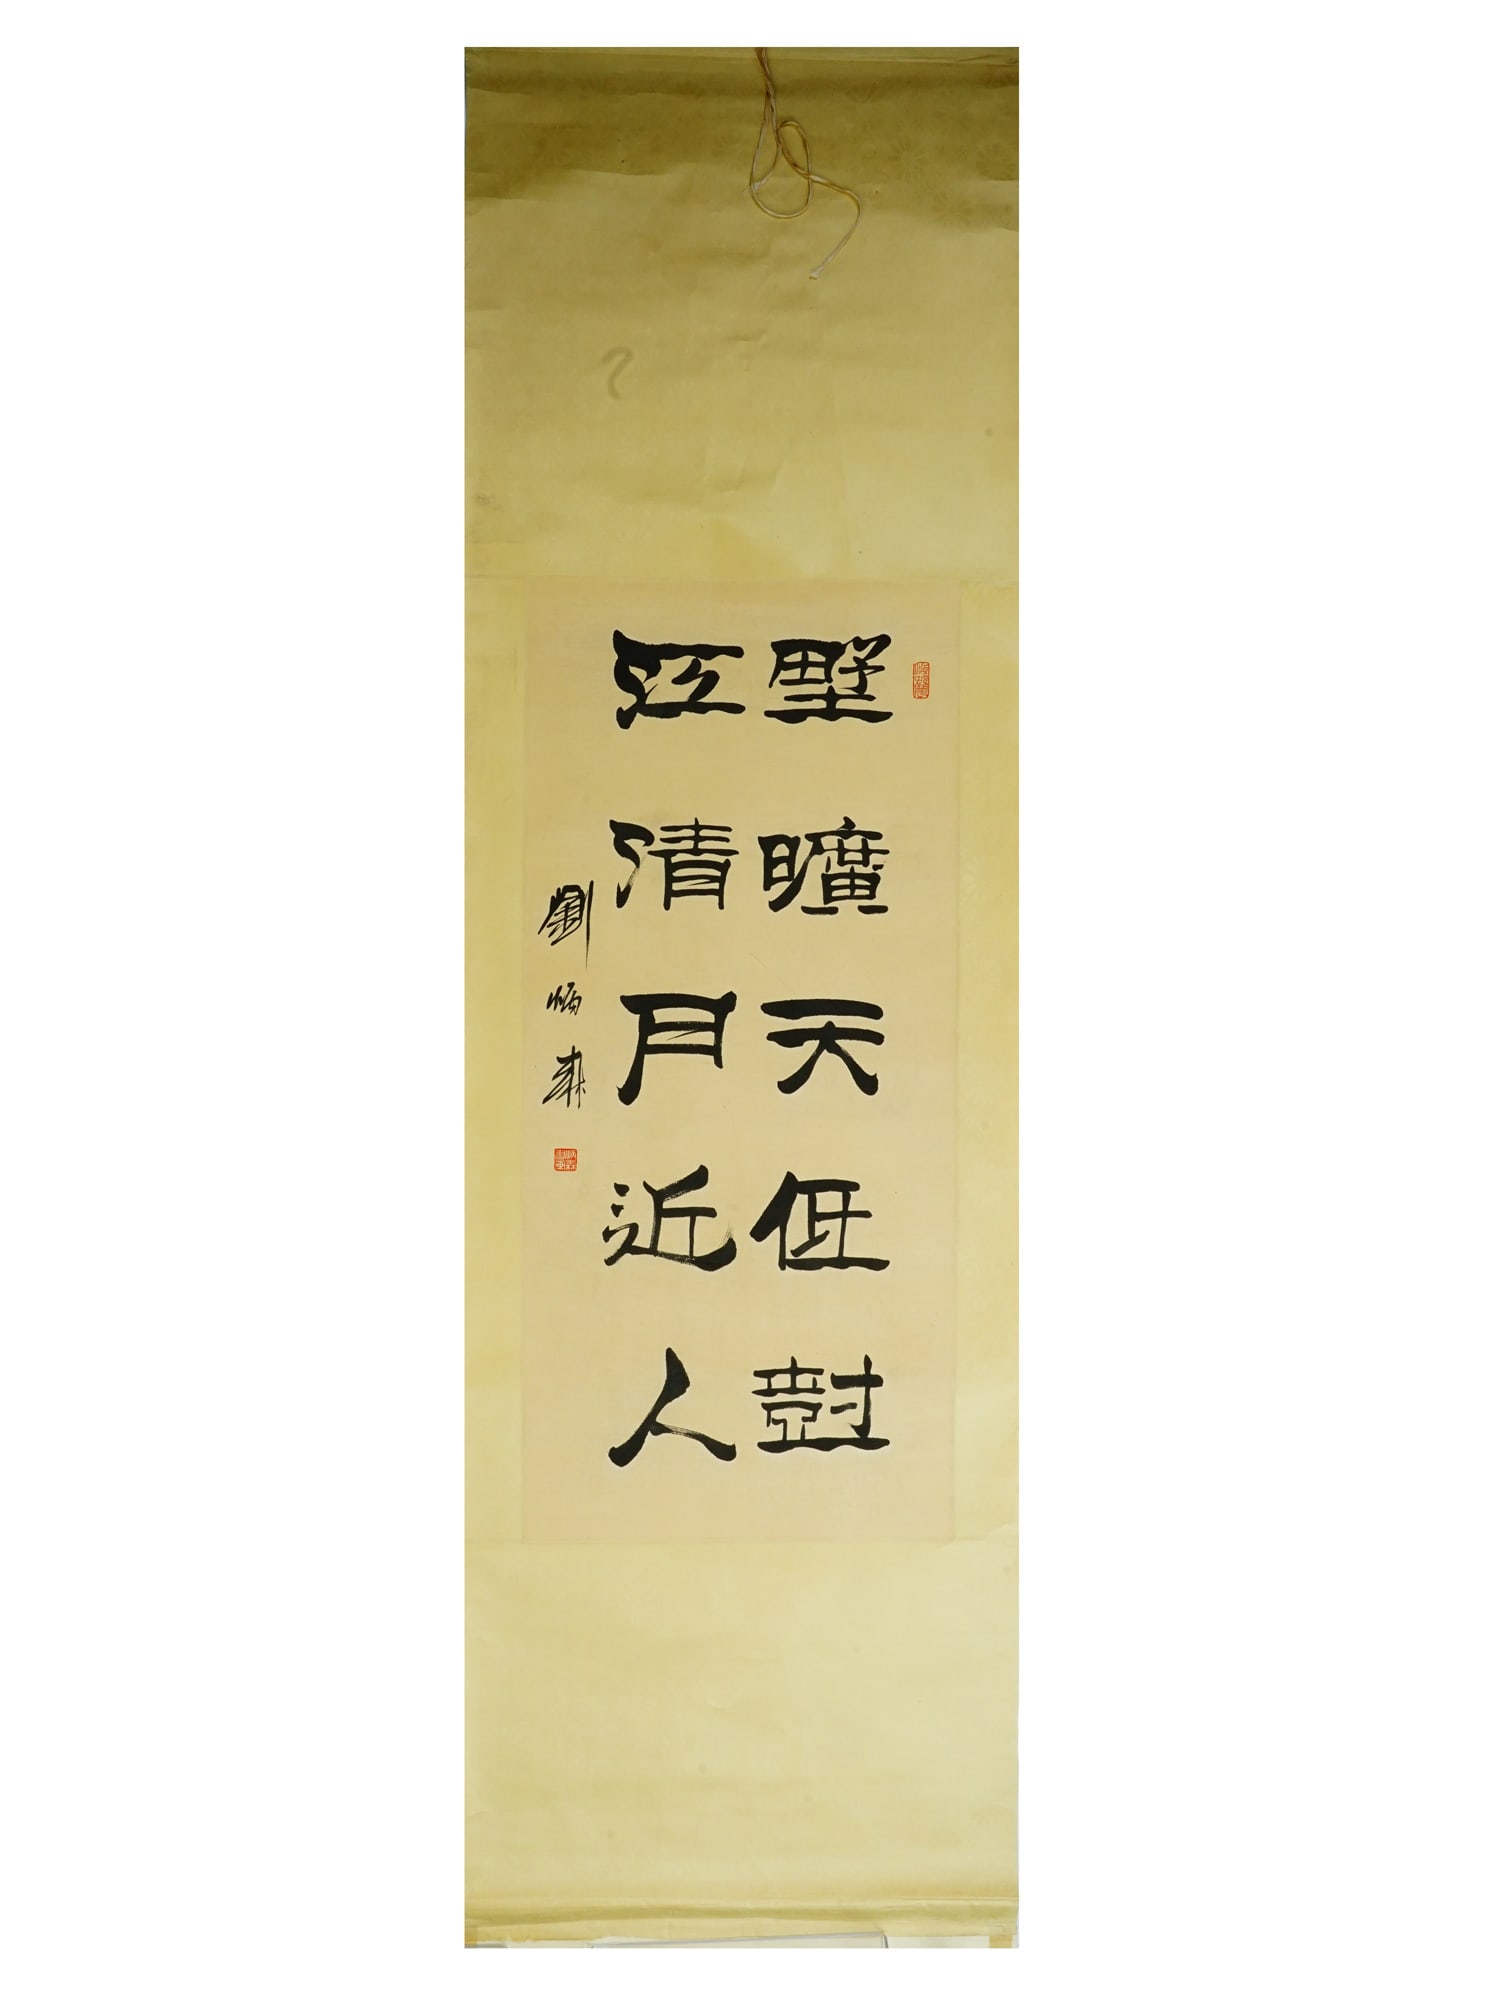 埜曠天低尌
江清月近人
劉炳森